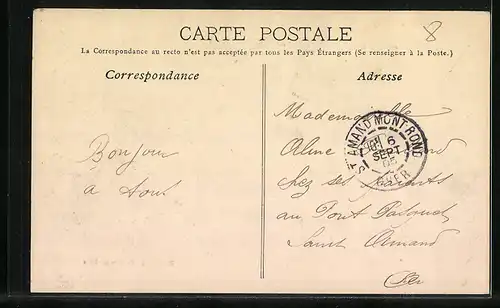 CARTE POSTALE
8
La Correspondance au recto n'est pas acceptée par tous les Pays Étrangers (Se renseigner à la Poste.)
Correspondance
Adresse
Mademoiselle
Aline
chez ses Parents
au Pont
Saint Amand
Cher
ST AMAND MONTROND
6
SEPT
05
CHER
Bonjour
a tous